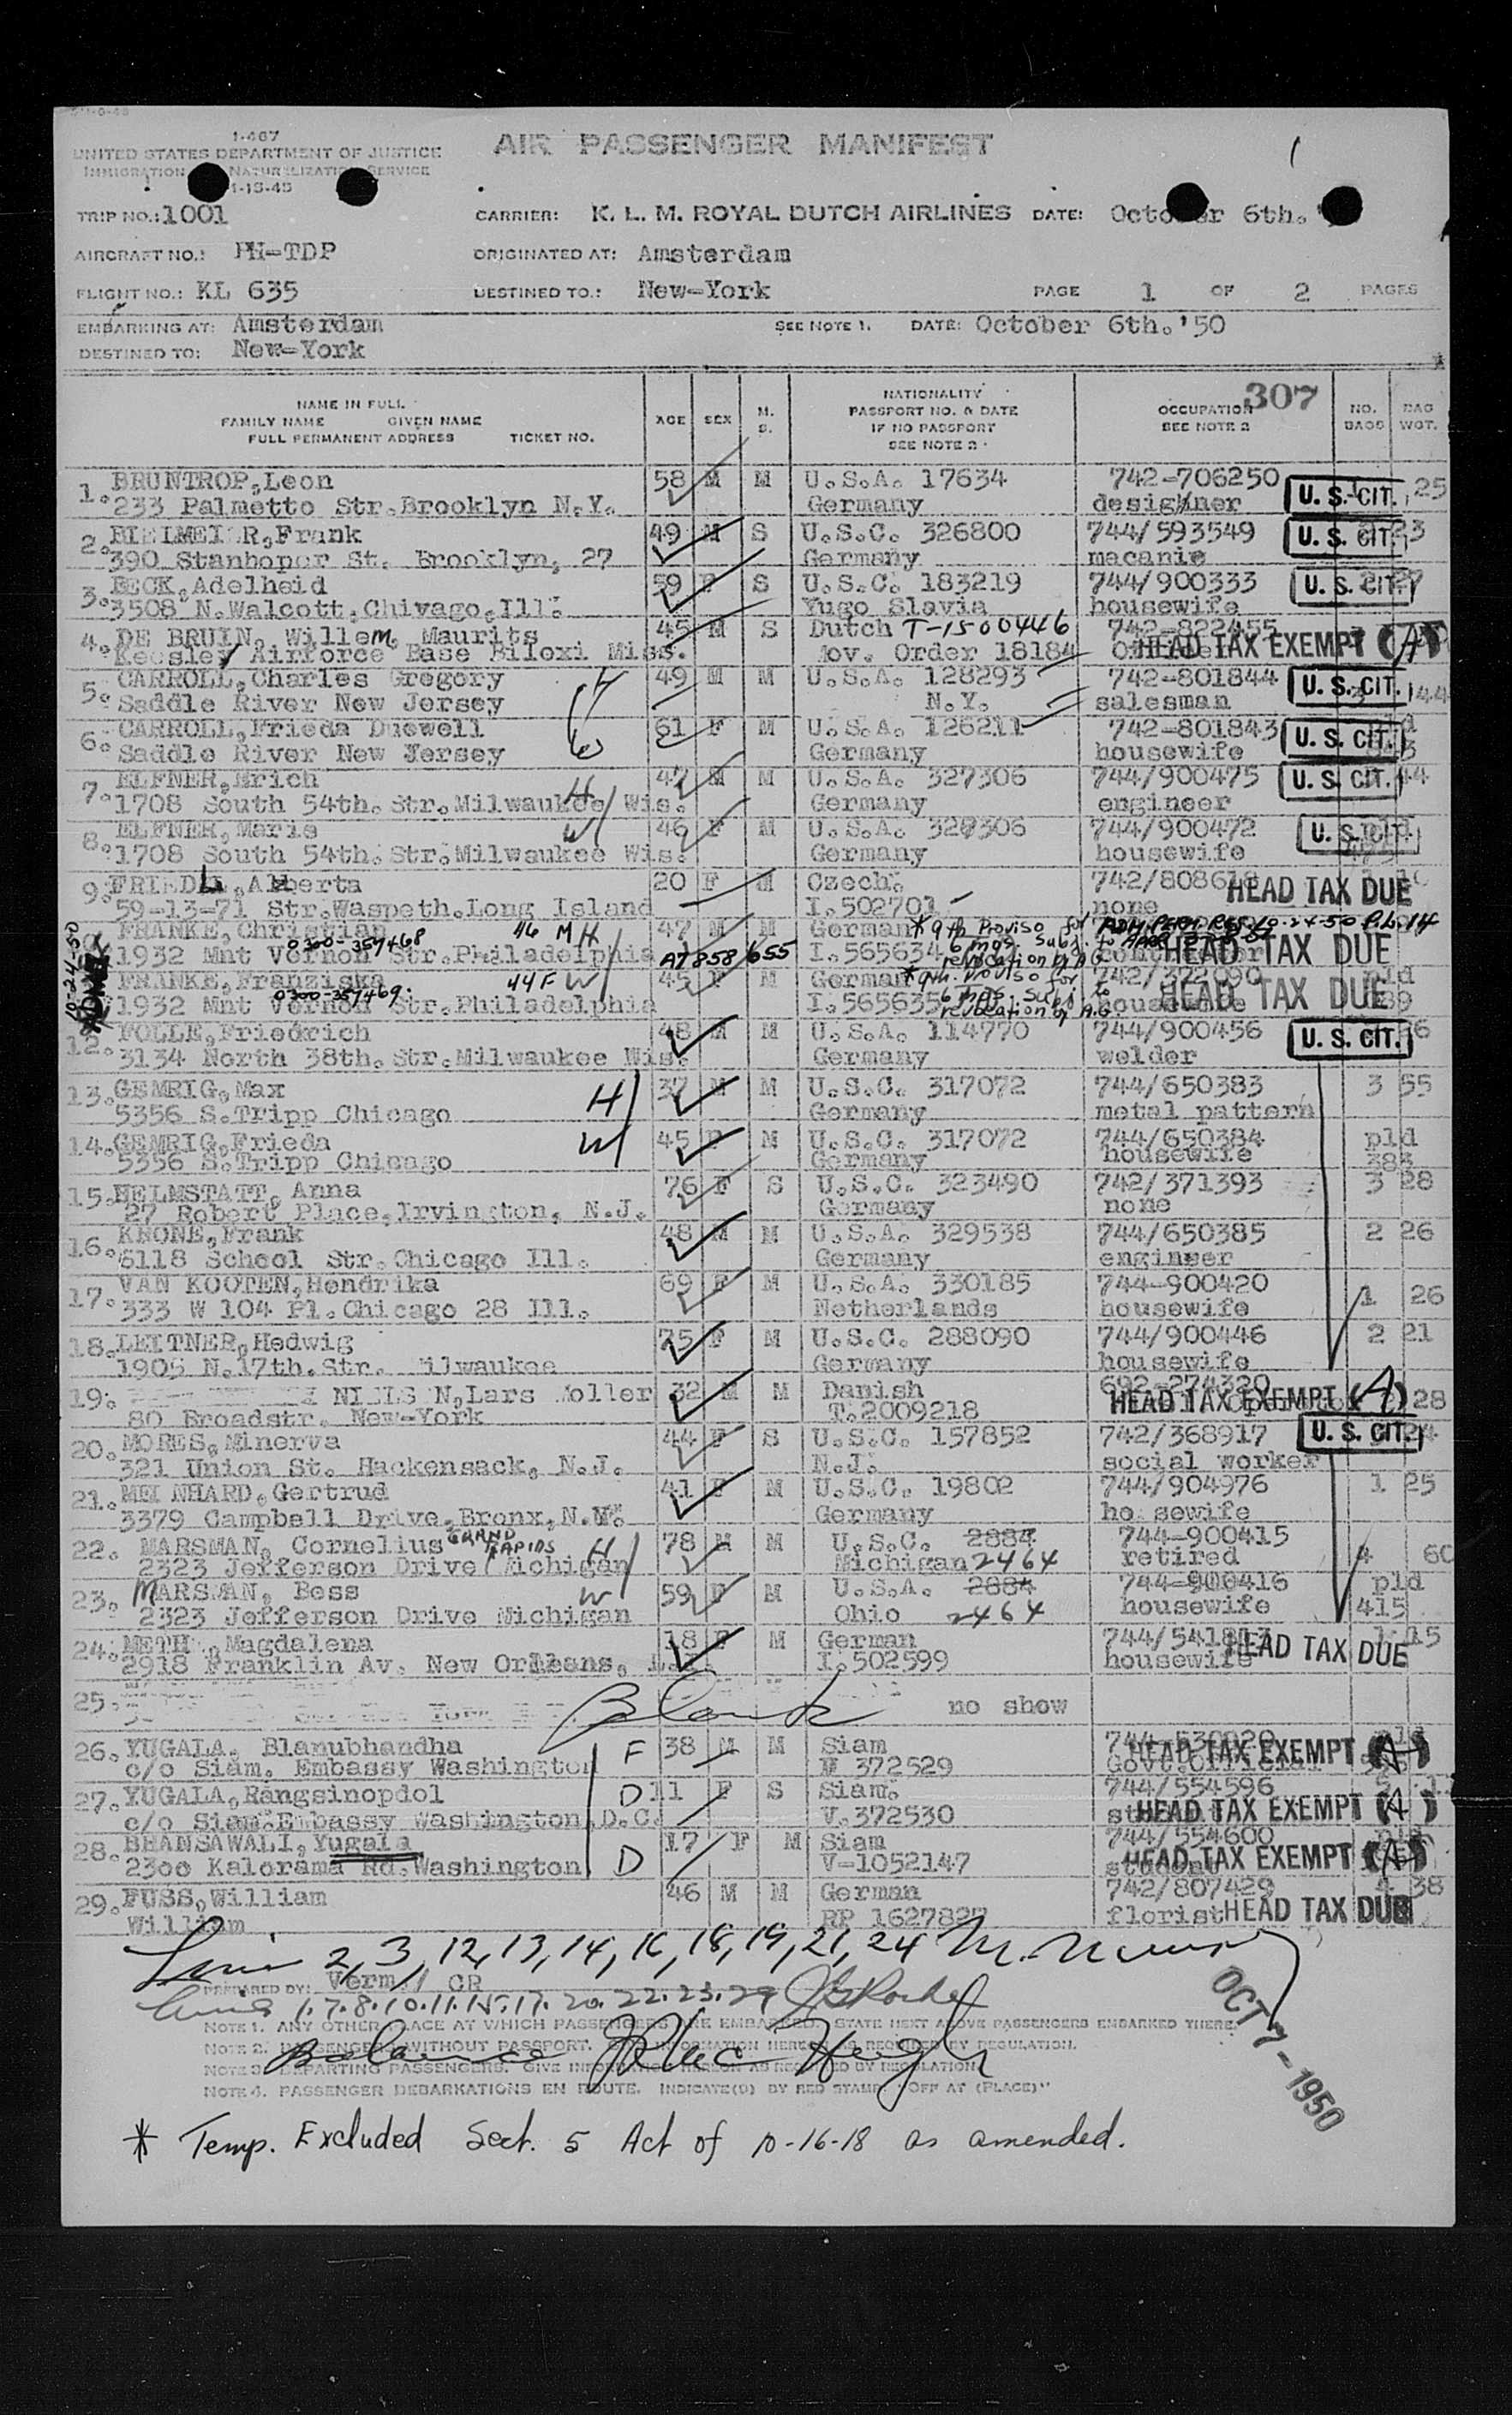 I-467
UNITED STATES DEPARTMENT OF JUSTICE
IMMIGRATION NATURALIZATION SERVICE
1-15-45
AIR PASSENGER MANIFEST
TRIP NO.: 1001 CARRIER: K. L. M. ROYAL DUTCH AIRLINES DATE: October 6th.
AIRCRAFT NO.: PH-TDP ORIGINATED AT: Amsterdam
FLIGHT NO.: KL 635 DESTINED TO.: New-York PAGE 1 OF 2 PAGES
EMBARKING AT: Amsterdam SEE NOTE 1. DATE: October 6th.'50
DESTINED TO: New-York
307
NAME IN FULL
FAMILY NAME GIVEN NAME
FULL PERMANENT ADDRESS TICKET NO.
AGE SEX M. S.
NATIONALITY
PASSPORT NO. & DATE
IF NO PASSPORT
SEE NOTE 2
OCCUPATION
SEE NOTE 2
NO. BAGS BAG WGT.
1. BRUNTROP, Leon 58 M M U.S.A. 17634 742-706250 U. S. CIT. 25
233 Palmetto Str. Brooklyn N.Y. Germany designer
2. Frank 49 M S U.S.C. 326800 744/593549 U. S. CIT. 23
390 Stanhopor St. Brooklyn, 27 Germany macanie
3. BECK, Adelheid 59 F S U.S.C. 183219 744/900333 U. S. CIT. 27
3508 N.Walcott, Chivago, Ill. Yugo Slavia housewife
4. DE BRUIN, Willem Maurits 45 M S Dutch T-1500446 742-822455
Keesley Airforce Base Biloxi Miss. Mov. Order 18184 HEAD TAX EXEMPT (A)
5. CARROLL, Charles Gregory 49 M M U.S.A. 128293 742-801844 U. S. CIT. 44
Saddle River New Jersey H N.Y. salesman
6. CARROLL, Frieda Duewell 61 F M U.S.A. 126211 742-801843 U. S. CIT. pld
Saddle River New Jersey W Germany housewife
7. ELFNER, Erich 47 M M U.S.A. 327306 744/900475 U. S. CIT. 44
1708 South 54th. Str. Milwaukee Wis. H Germany engineer
8. ELFNER, Marie 46 F M U.S.A. 327306 744/900472 U. S. CIT. pld
1708 South 54th. Str. Milwaukee Wis. W Germany housewife
9. FRIEDL, Alberta 20 F M Czech. HEAD TAX DUE
59-13-71 Str. Waspeth. Long Island I.502701 none
FRANKE, Christian 46 M H 47 M M German * 9th Proviso for ADM. PERM. RES. 10-24-50 P.L. 14
0300-357468 6 mos. Subj. to
1932 Mnt Vernon Str. Philadelphia A7858655 I.565634 revocation by A.G. HEAD TAX DUE
FRANKE, Franziska 44 F W 45 F M German * 9th. Proviso for 742/372090 pld
0300-357469 6 mos. Subj. to
1932 Mnt Vernon Str. Philadelphia I.565635 revocation by A.G. housewife HEAD TAX DUE
10-24-50
12. FOLLE, Friedrich 48 M M U.S.A. 114770 744/900456 U. S. CIT.
3134 North 38th. Str. Milwaukee Wis. Germany welder
13. GEMRIG, Max H 37 M M U.S.C. 317072 744/650383 3 55
5356 S.Tripp Chicago Germany metal pattern
14. GEMRIG, Frieda W 45 F M U.S.C. 317072 744/650384 pld
5356 S.Tripp Chicago Germany housewife 383
15. HELMSTATT, Anna 76 F S U.S.C. 323490 742/371393 3 28
27 Robert Place, Irvington, N.J. Germany none
16. KRONE, Frank 48 M M U.S.A. 329538 744/650385 2 26
6118 School Str. Chicago Ill. Germany engineer
17. VAN KOOTEN, Hendrika 69 F M U.S.A. 330185 744-900420 1 26
333 W 104 Pl. Chicago 28 Ill. Netherlands housewife
18. LEITNER, Hedwig 75 F M U.S.C. 288090 744/900446 2 21
1905 N.17th. Str. Milwaukee Germany housewife
19. Lars Moller 32 M M Danish 692-274320 28
80 Broadstr. New-York T.2009218 HEAD TAX EXEMPT (A)
20. MORES, Minerva 44 F S U.S.C. 157852 742/368917 U. S. CIT. 24
321 Union St. Hackensack, N.J. N.J. social worker
21. MEINHARD, Gertrud 41 F M U.S.C. 19802 744/904976 1 25
3379 Campbell Drive, Bronx, N.Y. Germany housewife
22. MARSMAN, Cornelius H 78 M M U.S.C. 2884 744-900415 4 60
2323 Jefferson Drive GRAND RAPIDS Michigan Michigan 2464 retired
23. MARSMAN, Bess W 59 F M U.S.A. 2884 744-900416 pld
2323 Jefferson Drive Michigan Ohio 2464 housewife 415
24. METH, Magdalena 18 F M German HEAD TAX DUE 15
2918 Franklin Av. New Orleans, I.502599 housewife
25. Blank no show
26. YUGALA, Blanubhandha F 38 M M Siam HEAD TAX EXEMPT (A)
c/o Siam. Embassy Washington 372529 Govt. Official
27. YUGALA, Rangsinopdol D 11 F S Siam. 744/554596
c/o Siam. Embassy Washington, D.C. V.372530 HEAD TAX EXEMPT (A)
28. BHANSAWALI, Yugala 17 F M Siam 744/554600
2300 Kalorama Rd. Washington D V-1052147 student HEAD TAX EXEMPT (A)
29. FUSS, William 46 M M German 742/807429 38
William florist HEAD TAX DUE
2, 3, 12, 13, 14, 16, 18, 19, 21, 24
PREPARED BY: CR
1. 7. 8. 10. 11. 15. 17. 20. 22. 23. 29
NOTE 1. ANY OTHER PLACE AT WHICH PASSENGERS ARE EMBARKED. STATE NEXT ABOVE PASSENGERS EMBARKED THERE.
NOTE 2. PASSENGERS WITHOUT PASSPORT. INFORMATION HEREON AS REQUIRED BY REGULATION.
Balance
NOTE 3. DEPARTING PASSENGERS. GIVE INFORMATION HEREON AS REQUIRED BY REGULATION.
NOTE 4. PASSENGER DEBARKATIONS EN ROUTE. INDICATE(D) BY RED STAMP "OFF AT (PLACE)"
OCT 7 - 1950
* Temp. Excluded Sect. 5 Act of 10-16-18 as amended.